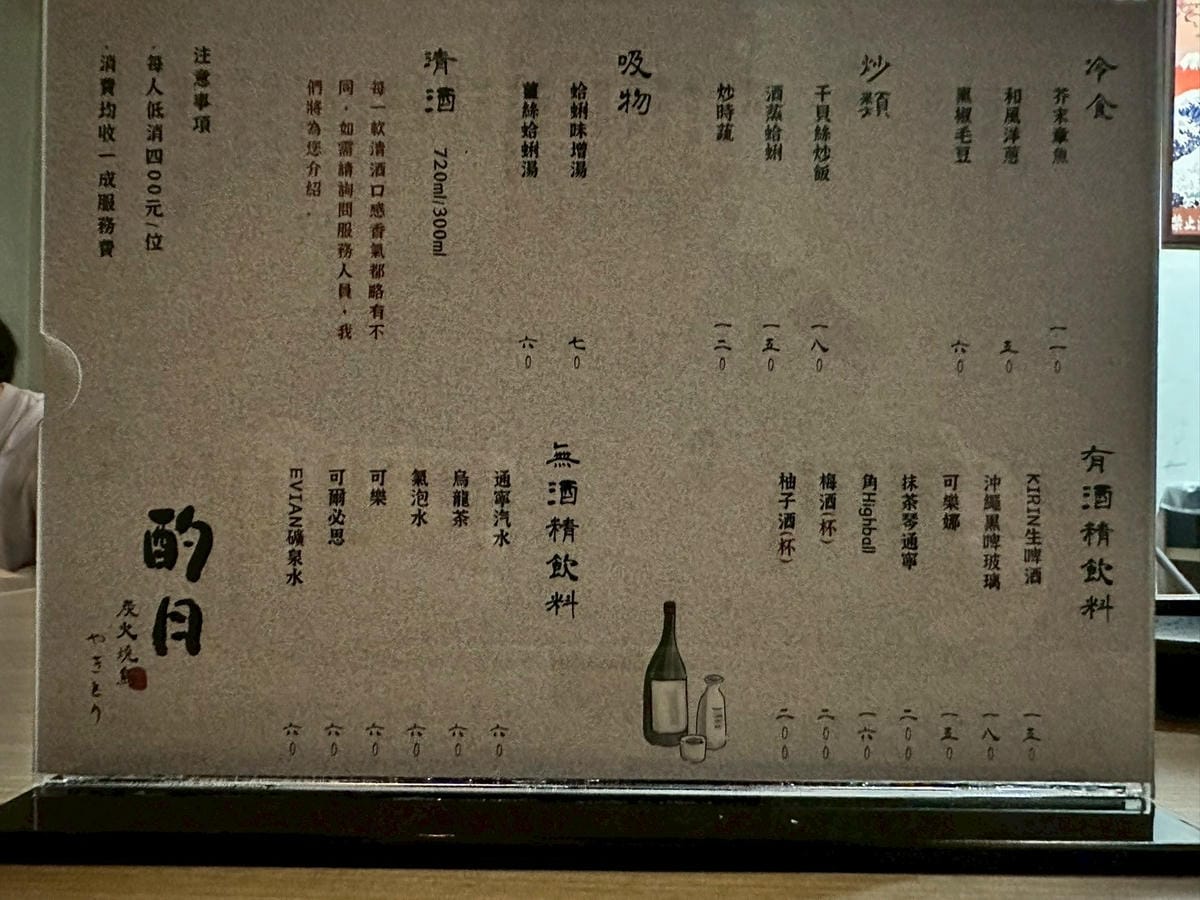 冷食
芥末章魚 一一0
和風洋蔥 五0
黑椒毛豆 六0
炒類
干貝絲炒飯 一八0
酒蒸蛤蜊 一五0
炒時蔬 一二0
吸物
蛤蜊味增湯 七0
薑絲蛤蜊湯 六0
清酒 720ml/300ml
每一款清酒口感香氣都略有不
同，如需請詢問服務人員，我
們將為您介紹．
注意事項
．每人低消四00元/位
．消費均收一成服務費
有酒精飲料
KIRIN生啤酒 一五0
沖繩黑啤玻璃 一八0
可樂娜 一五0
抹茶琴通寧 二00
角Highball 一六0
梅酒(杯) 二00
柚子酒(杯) 二00
無酒精飲料
通寧汽水 六0
烏龍茶 六0
氣泡水 六0
可樂 六0
可爾必思 六0
EVIAN礦泉水 六0
酌月
炭火燒鳥
やきとり
禁止